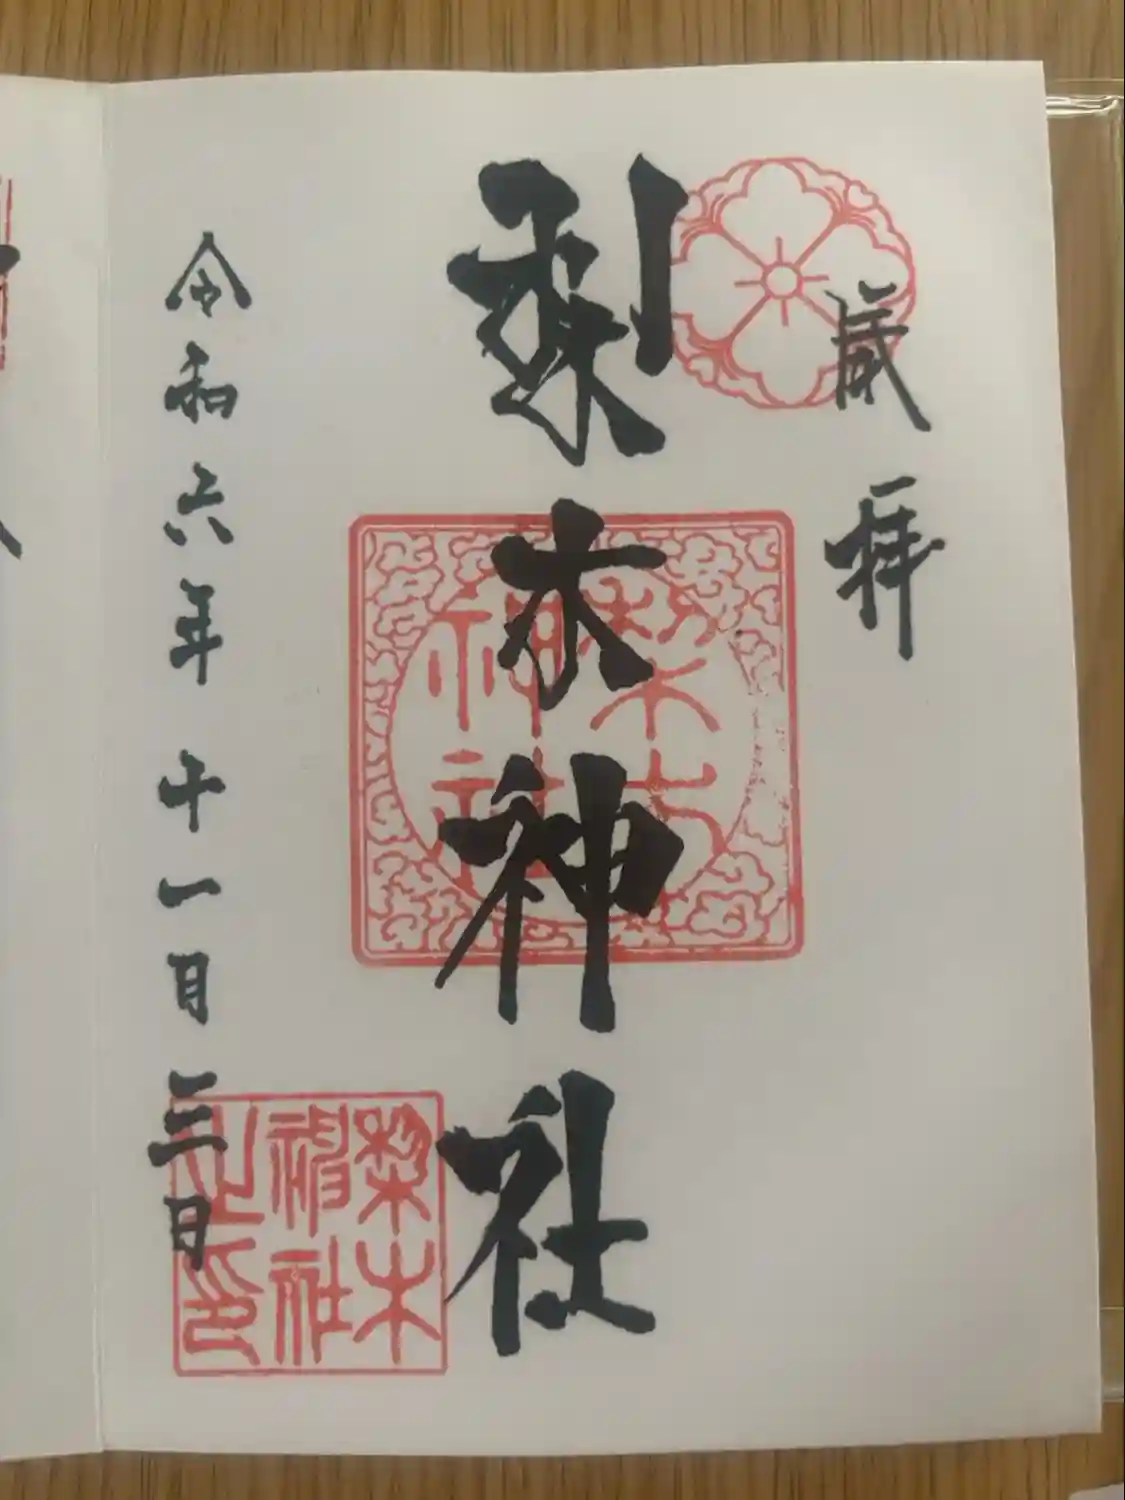 拝
梨木神社
梨木神社
令和六年十一月三日
梨木神社之印